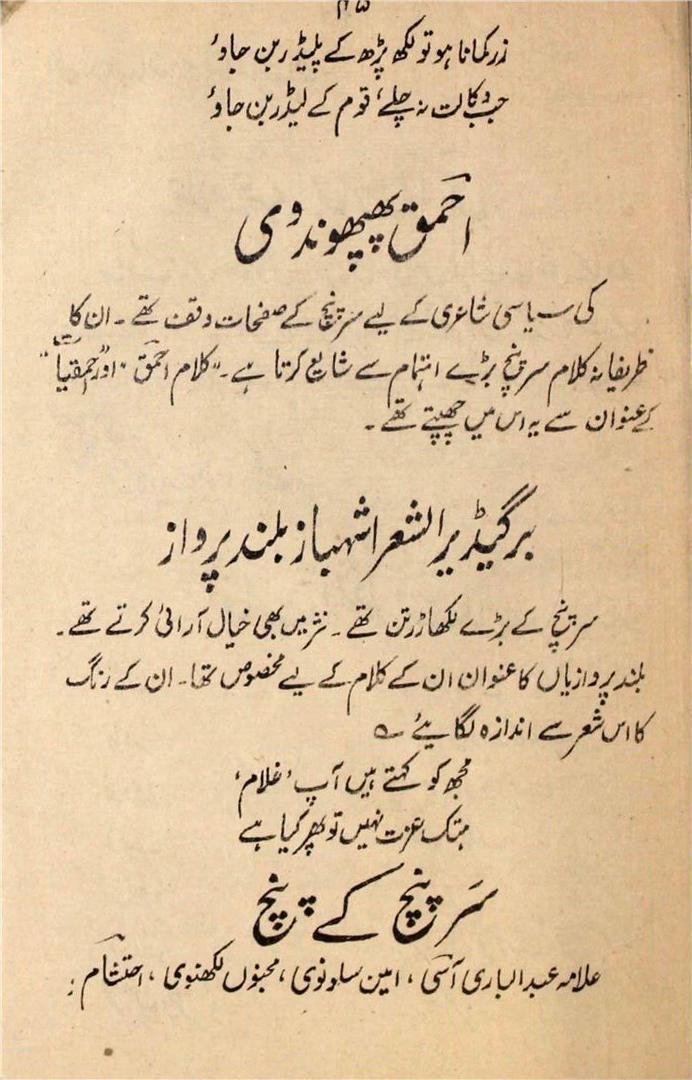 ۴۵
زر کمانا ہو تو لکھ پڑھ کے پلیڈر بن جاؤ
جب وکالت نہ چلے، قوم کے لیڈر بن جاؤ
احمق پھپھوندوی
کی سیاسی شاعری کے لیے سرپنچ کے صفحات وقف تھے۔ ان کا
ظریفانہ کلام سرپنچ بڑے اہتمام سے شایع کرتا ہے۔ "کلام احمق" اور "حمقیات"
کے عنوان سے یہ اس میں چھپتے تھے۔
برگیڈیر الشعرا شہباز بلند پرواز
سرپنچ کے بڑے لکھاڑ رتن تھے۔ نثر میں بھی خیال آرائی کرتے تھے۔
بلند پروازیاں کا عنوان ان کے کلام کے لیے مخصوص تھا۔ ان کے رنگ
کا اس شعر سے اندازہ لگایئے ؎
مجھ کو کہتے ہیں آپ 'غلام'
ہتک عزت نہیں تو پھر کیا ہے
سَرپنچ کے پنچ
علامہ عبدالباری آسی، امین سلونوی، مجنوں لکھنوی، احتشام